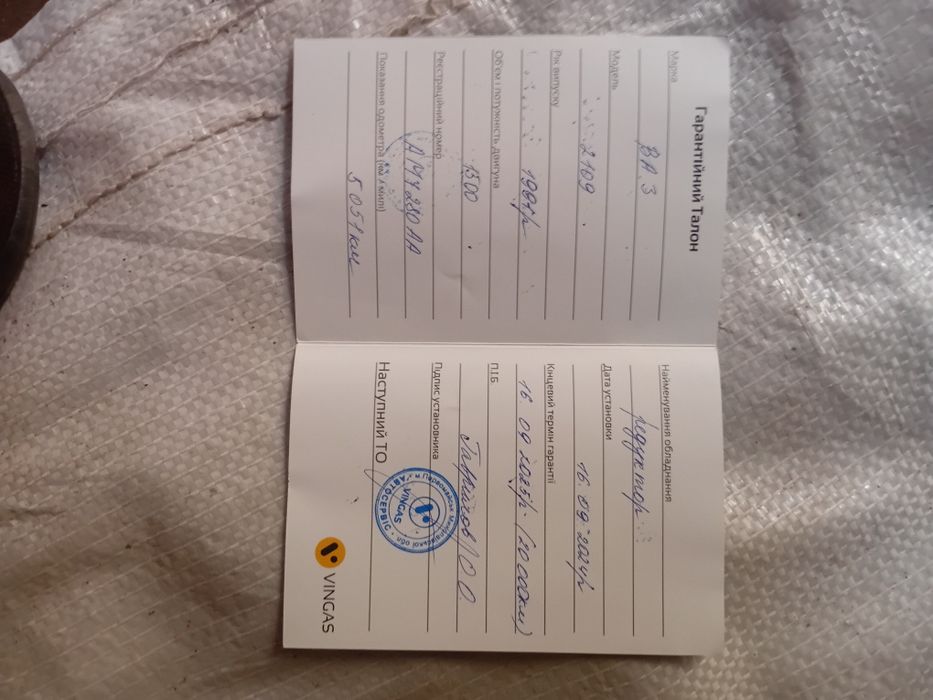 Гарантійний Талон
Марка
ВА.З
Модель
2109
Рік випуску
1991р
Об'єм і потужність двигуна
1500
Реєстраційний номер
Показання одометра (км / милі)
5051 км
Найменування обладнання
редуктор
Дата установки
16.09.2024р
Кінцевий термін гарантії
16.09.2025р. (20 000км)
П.І.Б.
О.О.
Підпис установника
м.Первомайськ
АВТОСЕРВІС
VINGAS
Наступний ТО
VINGAS